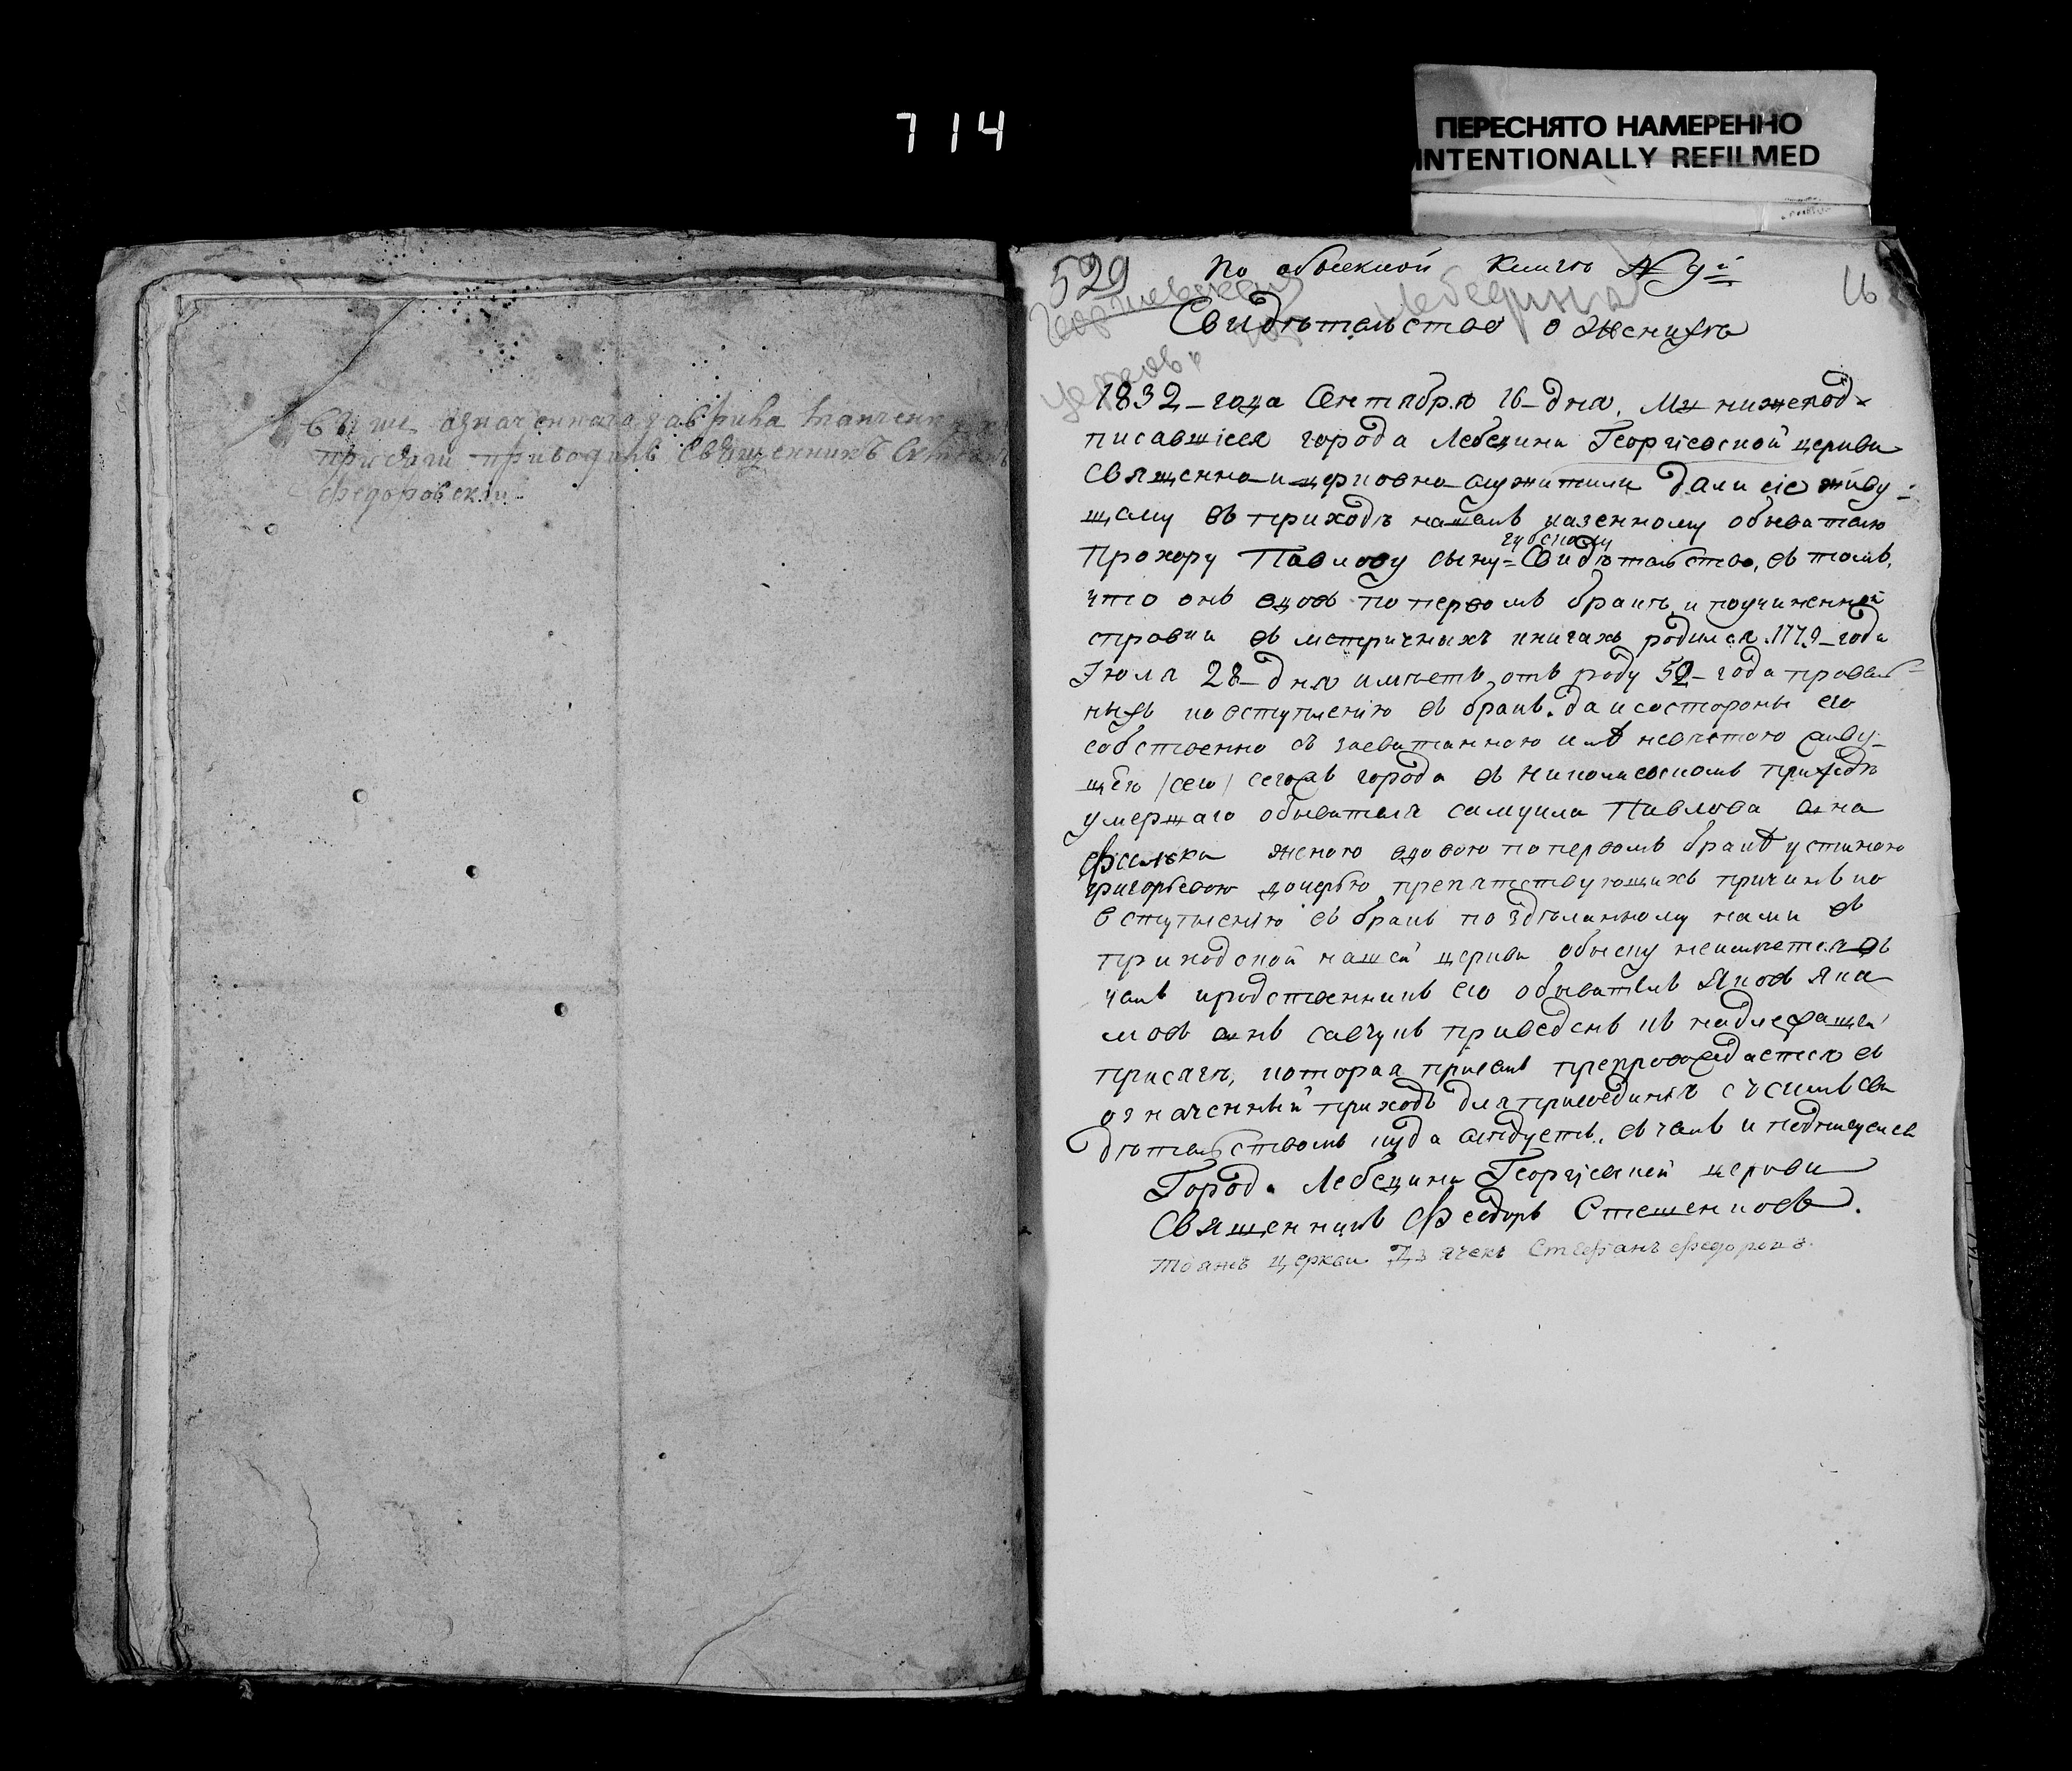 714
ПЕРЕСНЯТО НАМЕРЕННО
INTENTIONALLY REFILMED
выше означеннага гаврила
присяги приводилъ Священникъ
Федоровскій
529 По обыскной книгѣ № 9й
16
Георгиевская Лебедина
церковь
Свидѣтельство о женихѣ
1832-года Сентября 16-дня. Мы нижепод-
писавшіеся города Лебедина Георгіевской церкви
Священно-и-церковно-служители дали сіе живу-
щему въ приходѣ нашемъ казенному обывателю
Прохору Павлову сыну Свидѣтельство, въ томъ,
что онъ вдовъ по первомъ бракѣ, и по учиненной
справки въ метричныхъ книгахъ родился 1779-года
Іюля 28-дня имѣетъ отъ роду 52-года
къ вступленію въ бракъ. да и состороны его
собственно съ засватанною имъ невѣстою живу-
щею /сею/ сегожъ города въ Николаевскомъ приходѣ
умершаго обывателя самуила Павлова сына
женою вдовою по первомъ бракѣ устиною
григорьевою дочерью препятствующихъ причинъ ко
вступленію въ бракъ по здѣланному нами въ
приходской нашей церкви обыску неимѣется въ
чемъ и родственникъ его обыватель Яковъ Яки
мовъ сынъ савчукъ приведенъ къ надлежащей
присягѣ, которая присемъ препровождается въ
означенный приходъ для присоединѣя съ симъ сви
дѣтельствомъ куда слѣдуетъ. въ чемъ и подпишуемся
Города Лебедина Георгіевской церкви
Священникъ Феодоръ Стешенковъ.
Тоаяжъ церкви Дьячекъ Стефанъ Федоровъ.